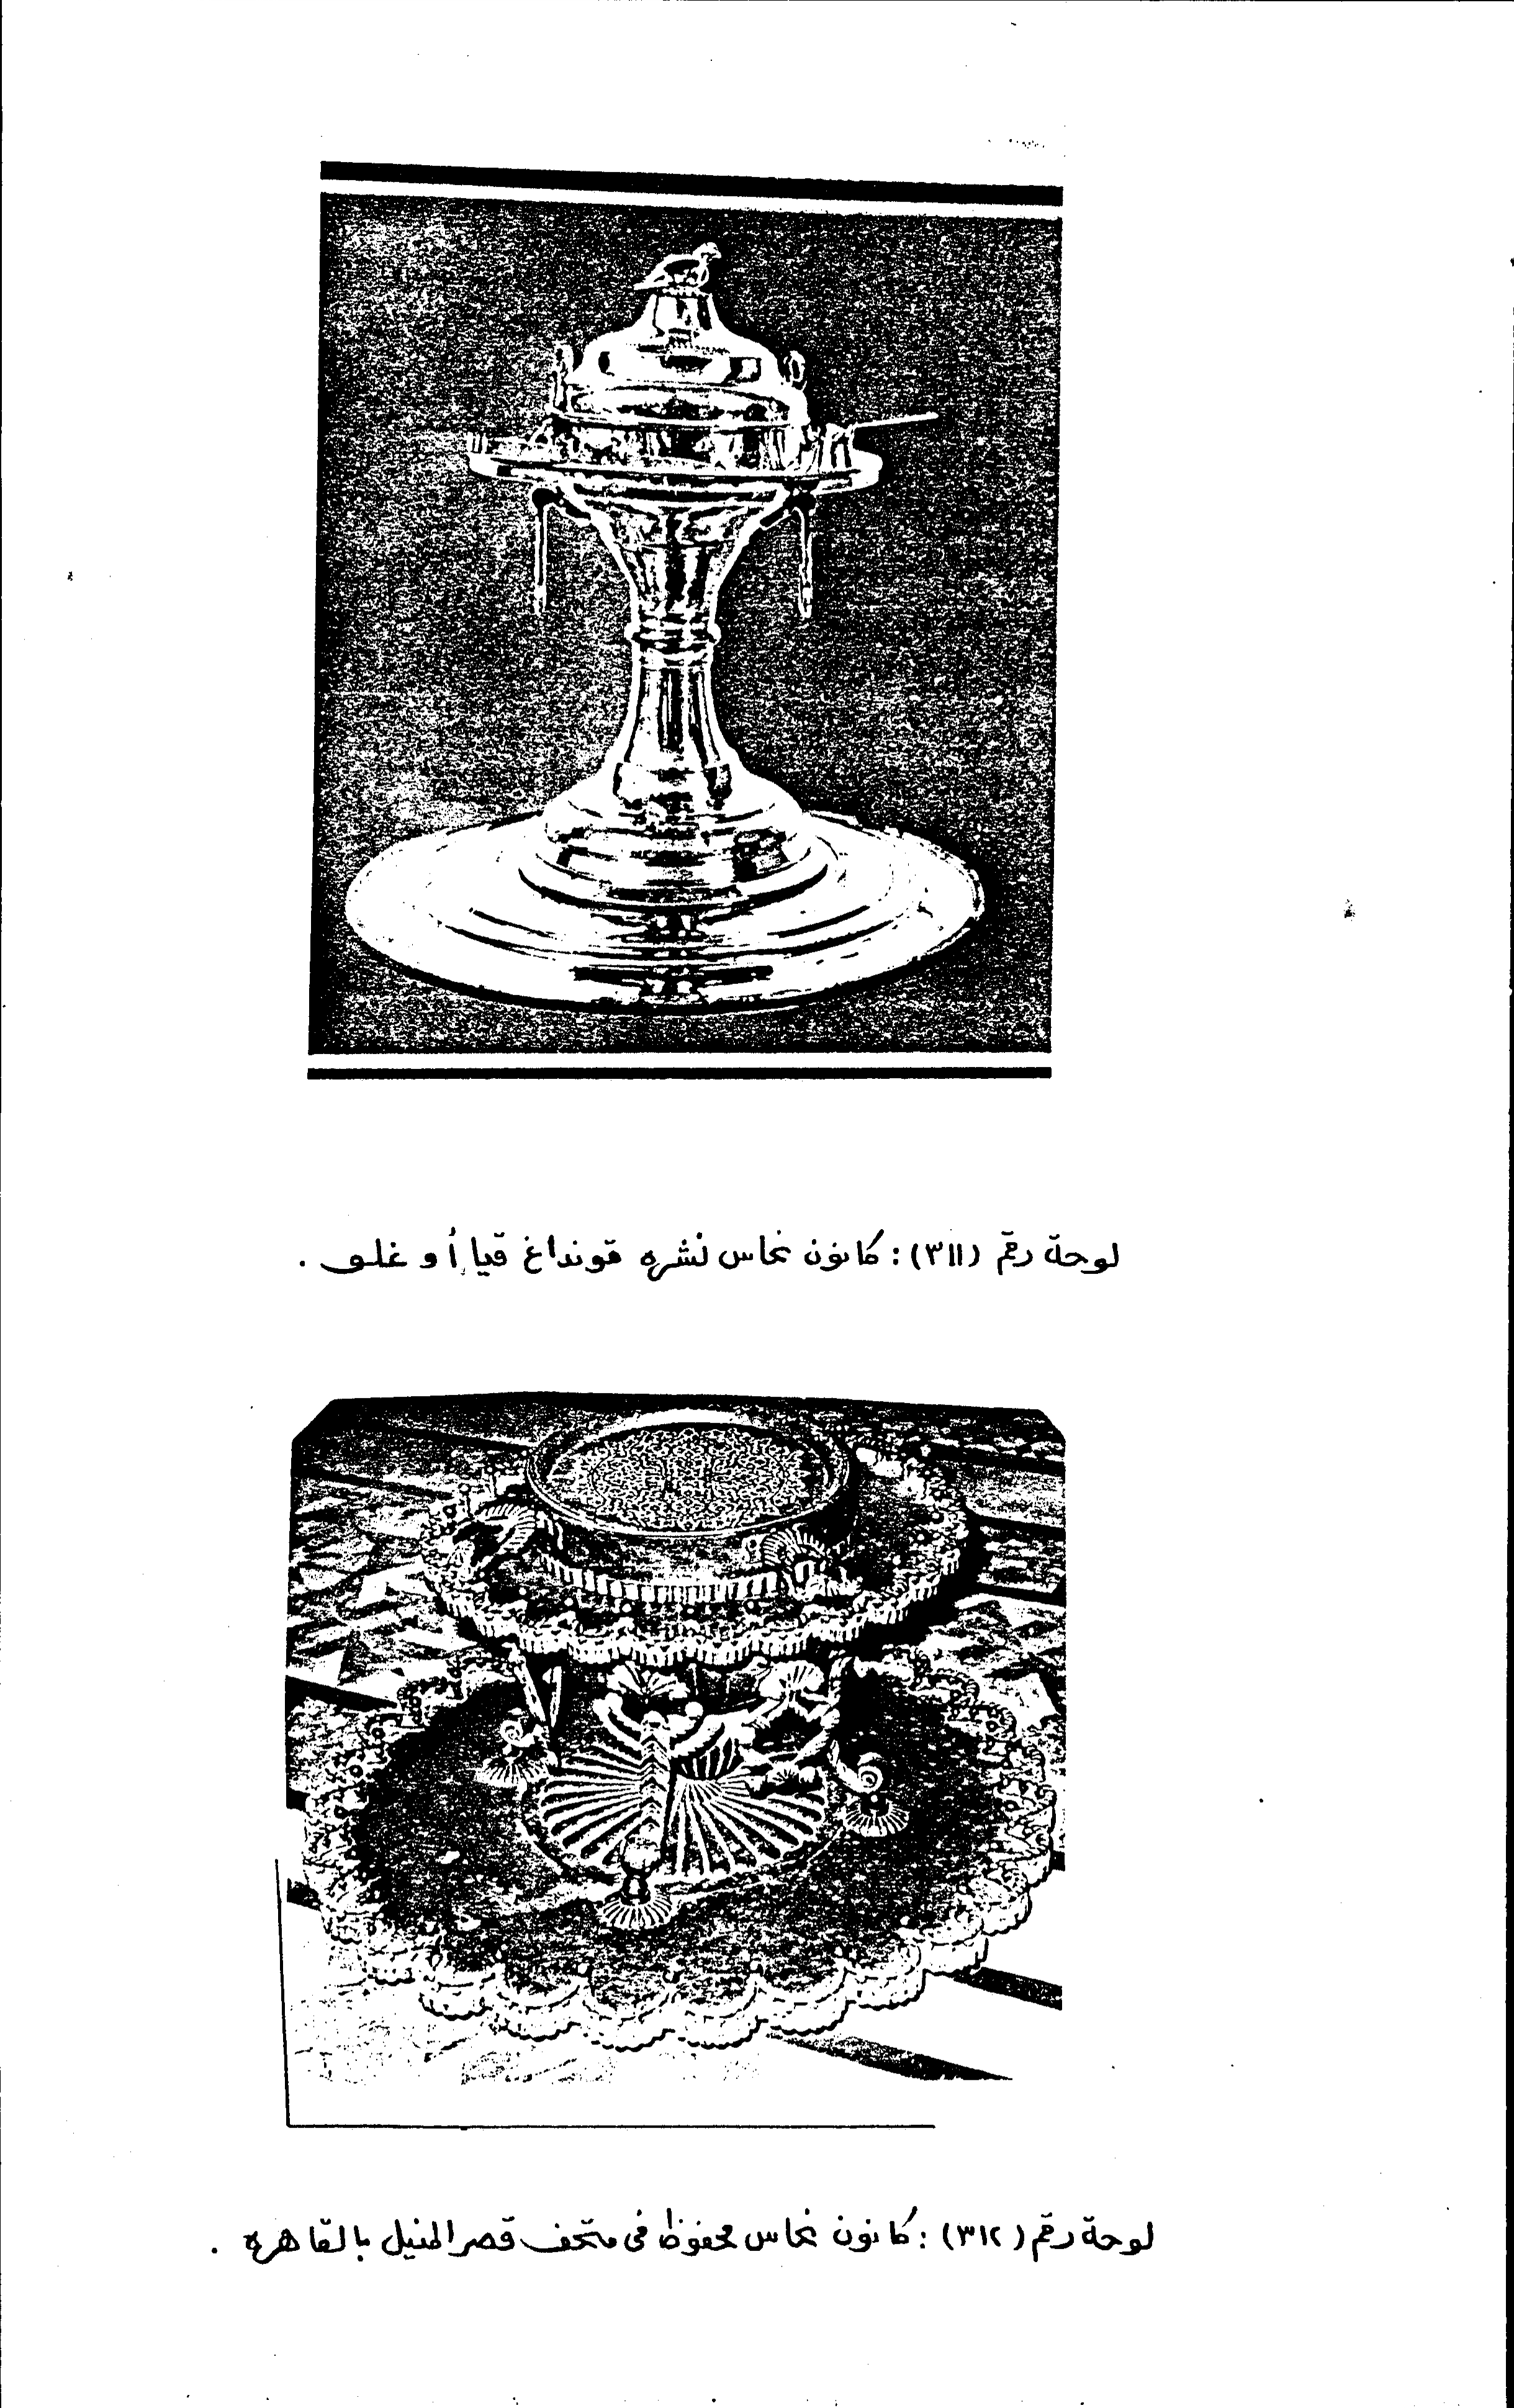 لوحة رقم (٣١١) : كانون نحاس نشره قونداغ قيا أوغلو .
لوحة رقم (٣١٢) : كانون نحاس محفوظ فى متحف قصر المنيل بالقاهره .